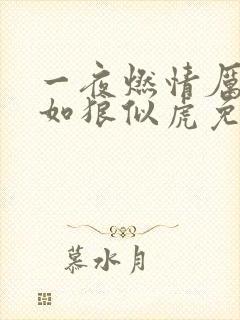 一夜燃情厉
如狼似虎免
慕水月